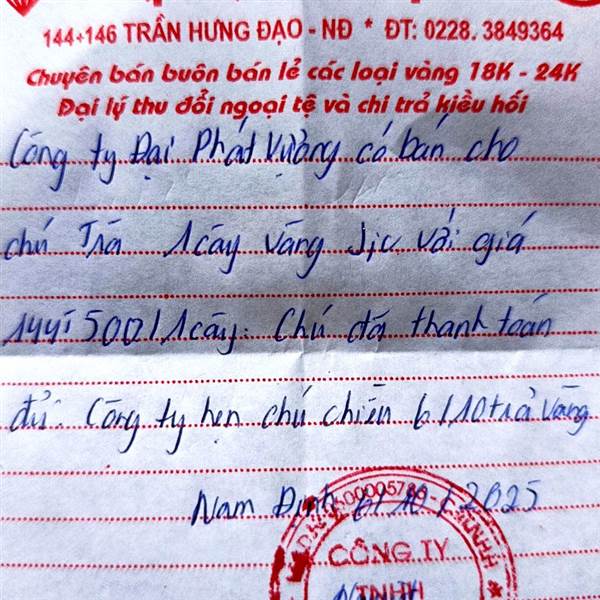 144+146 TRẦN HƯNG ĐẠO - NĐ * ĐT: 0228. 3849364
Chuyên bán buôn bán lẻ các loại vàng 18K - 24K
Đại lý thu đổi ngoại tệ và chi trả kiều hối
Công ty Đại Phát Vượng có bán cho
chú Trà 1 cây vàng sjc với giá
144tr500/1 cây. Chú đã thanh toán
đủ. Công ty hẹn chú chiều 6/10 trả vàng
Nam Định 6/10/2025
CÔNG TY
TNHH